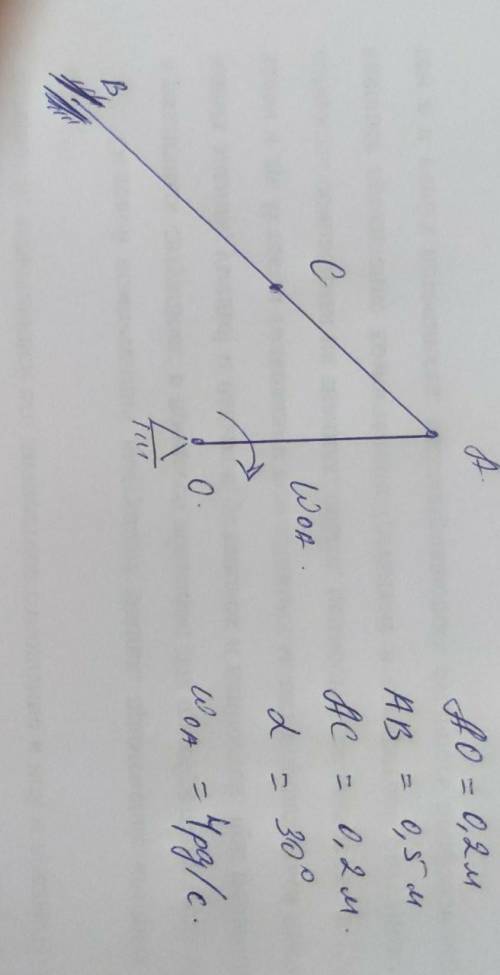 B
C
A
O.
ωOA.
AO = 0,2 м
AB = 0,5 м
AC = 0,2 м.
α = 30°
ωOA = 4 рд/с.